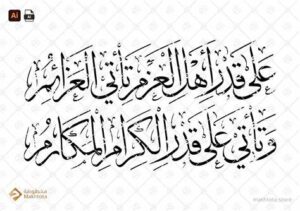 Ai
عَلَى قَدْرِ أَهْلِ الْعَزْمِ تَأْتِي الْعَزَائِمُ
وَتَأْتِي عَلَى قَدْرِ الْكِرَامِ الْمَكَارِمُ
مخطوطة
Makhtota
makhtota.store